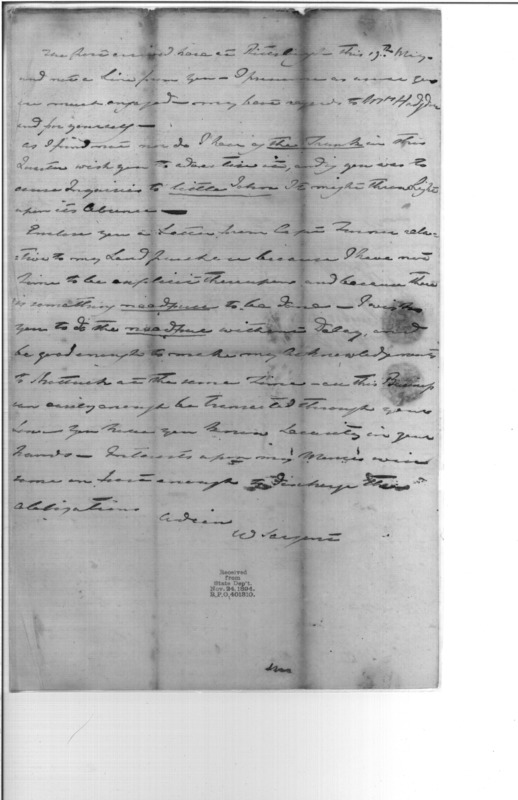 The Post arrived here at Pittsburgh this 19th May
and not a Line from you - I presume as usual you
are much engaged - my best regards to Mrs Hodgdon
and for yourself -
as I find not nor do I hear of the Trunk in this
Quarter wish you to advertise it, and if you was to
cause Inquiries to little John It might throw Light
upon its Absence -
Enclose you a Letter from Capt rela-
tive to my Land purchase because I have not
time to be explicit thereupon and because there
is something needful to be done - I wish
you to do the needful without Delay, and
be good enough to make my acknowledgments
to at the same time - all this Business
can easily enough be transacted through your
Love You have your Security in your
hands - Interests upon my Monies will
come on fast enough to Discharge these
obligations
adieu
W Sargent
Received
from
State Dep't.
Nov. 24, 1894.
R.P.O. 401810.